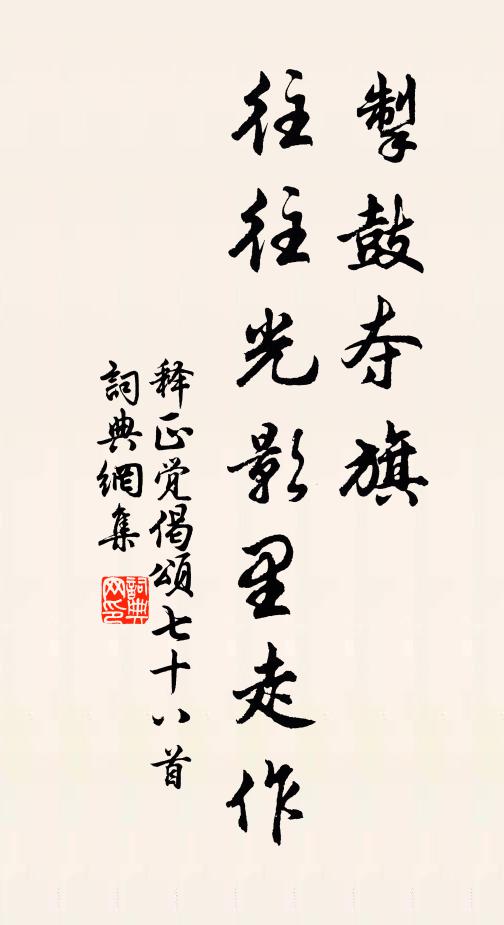 掣鼓夺旗
往往光影里走作
释正觉偈頌七十八首
詞典網集
詞典網印